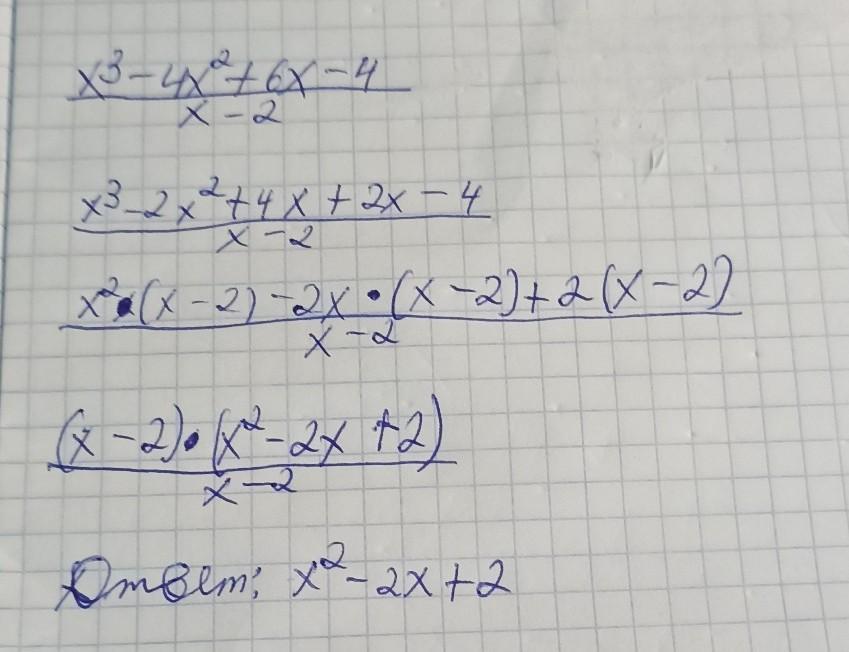 x³-4x²+6x-4
x-2
x³-2x²+4x+2x-4
x-2
x²•(x-2)-2x•(x-2)+2(x-2)
x-2
(x-2)•(x²-2x+2)
x-2
Ответ: x²-2x+2